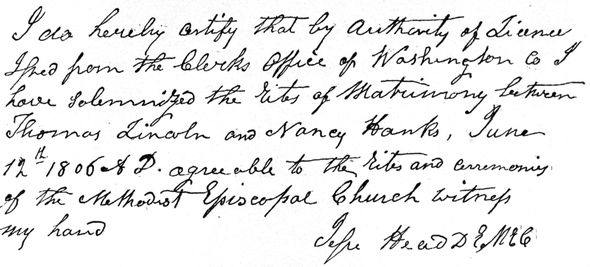 I do hereby certify that by Authority of Licence
Issed from the Clerks Office of Washington Co I
have Solemnized the Rites of Matrimony between
Thomas Lincoln and Nancy Hanks, June
12th 1806 A D. agreeable to the Rites and ceremonies
of the Methodist Episcopal Church witness
my hand
Jesse Head D E. M E C